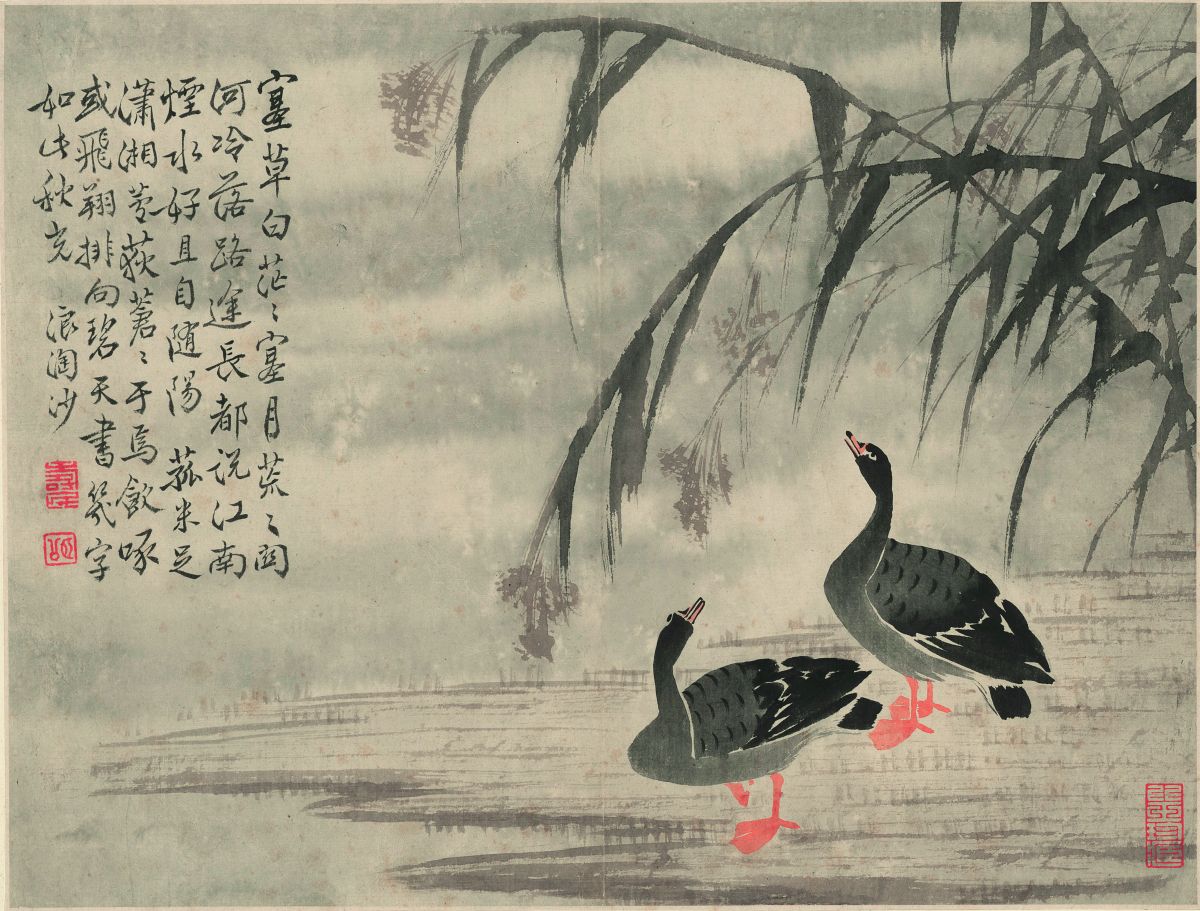 塞草白茫〻塞月荒〻関
河冷落路途長都说江南
煙水好且自随陽 菰米足
瀟湘荻蒼〻于焉飲啄
或飛翔排向碧天書幾字
如此秋光 浪淘沙